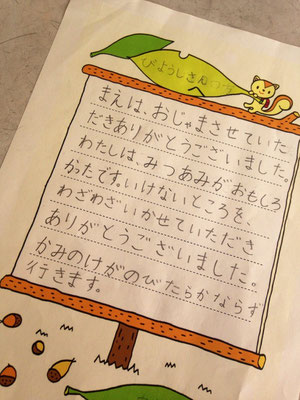 びようしさんへ
まえは、おじゃまさせていた
だきありがとうございました。
わたしは、みつあみがおもしろ
かったです。いけないところを、
わざわざいかせていただき
ありがとうございました。
かみのけがのびたらかならず
行きます。